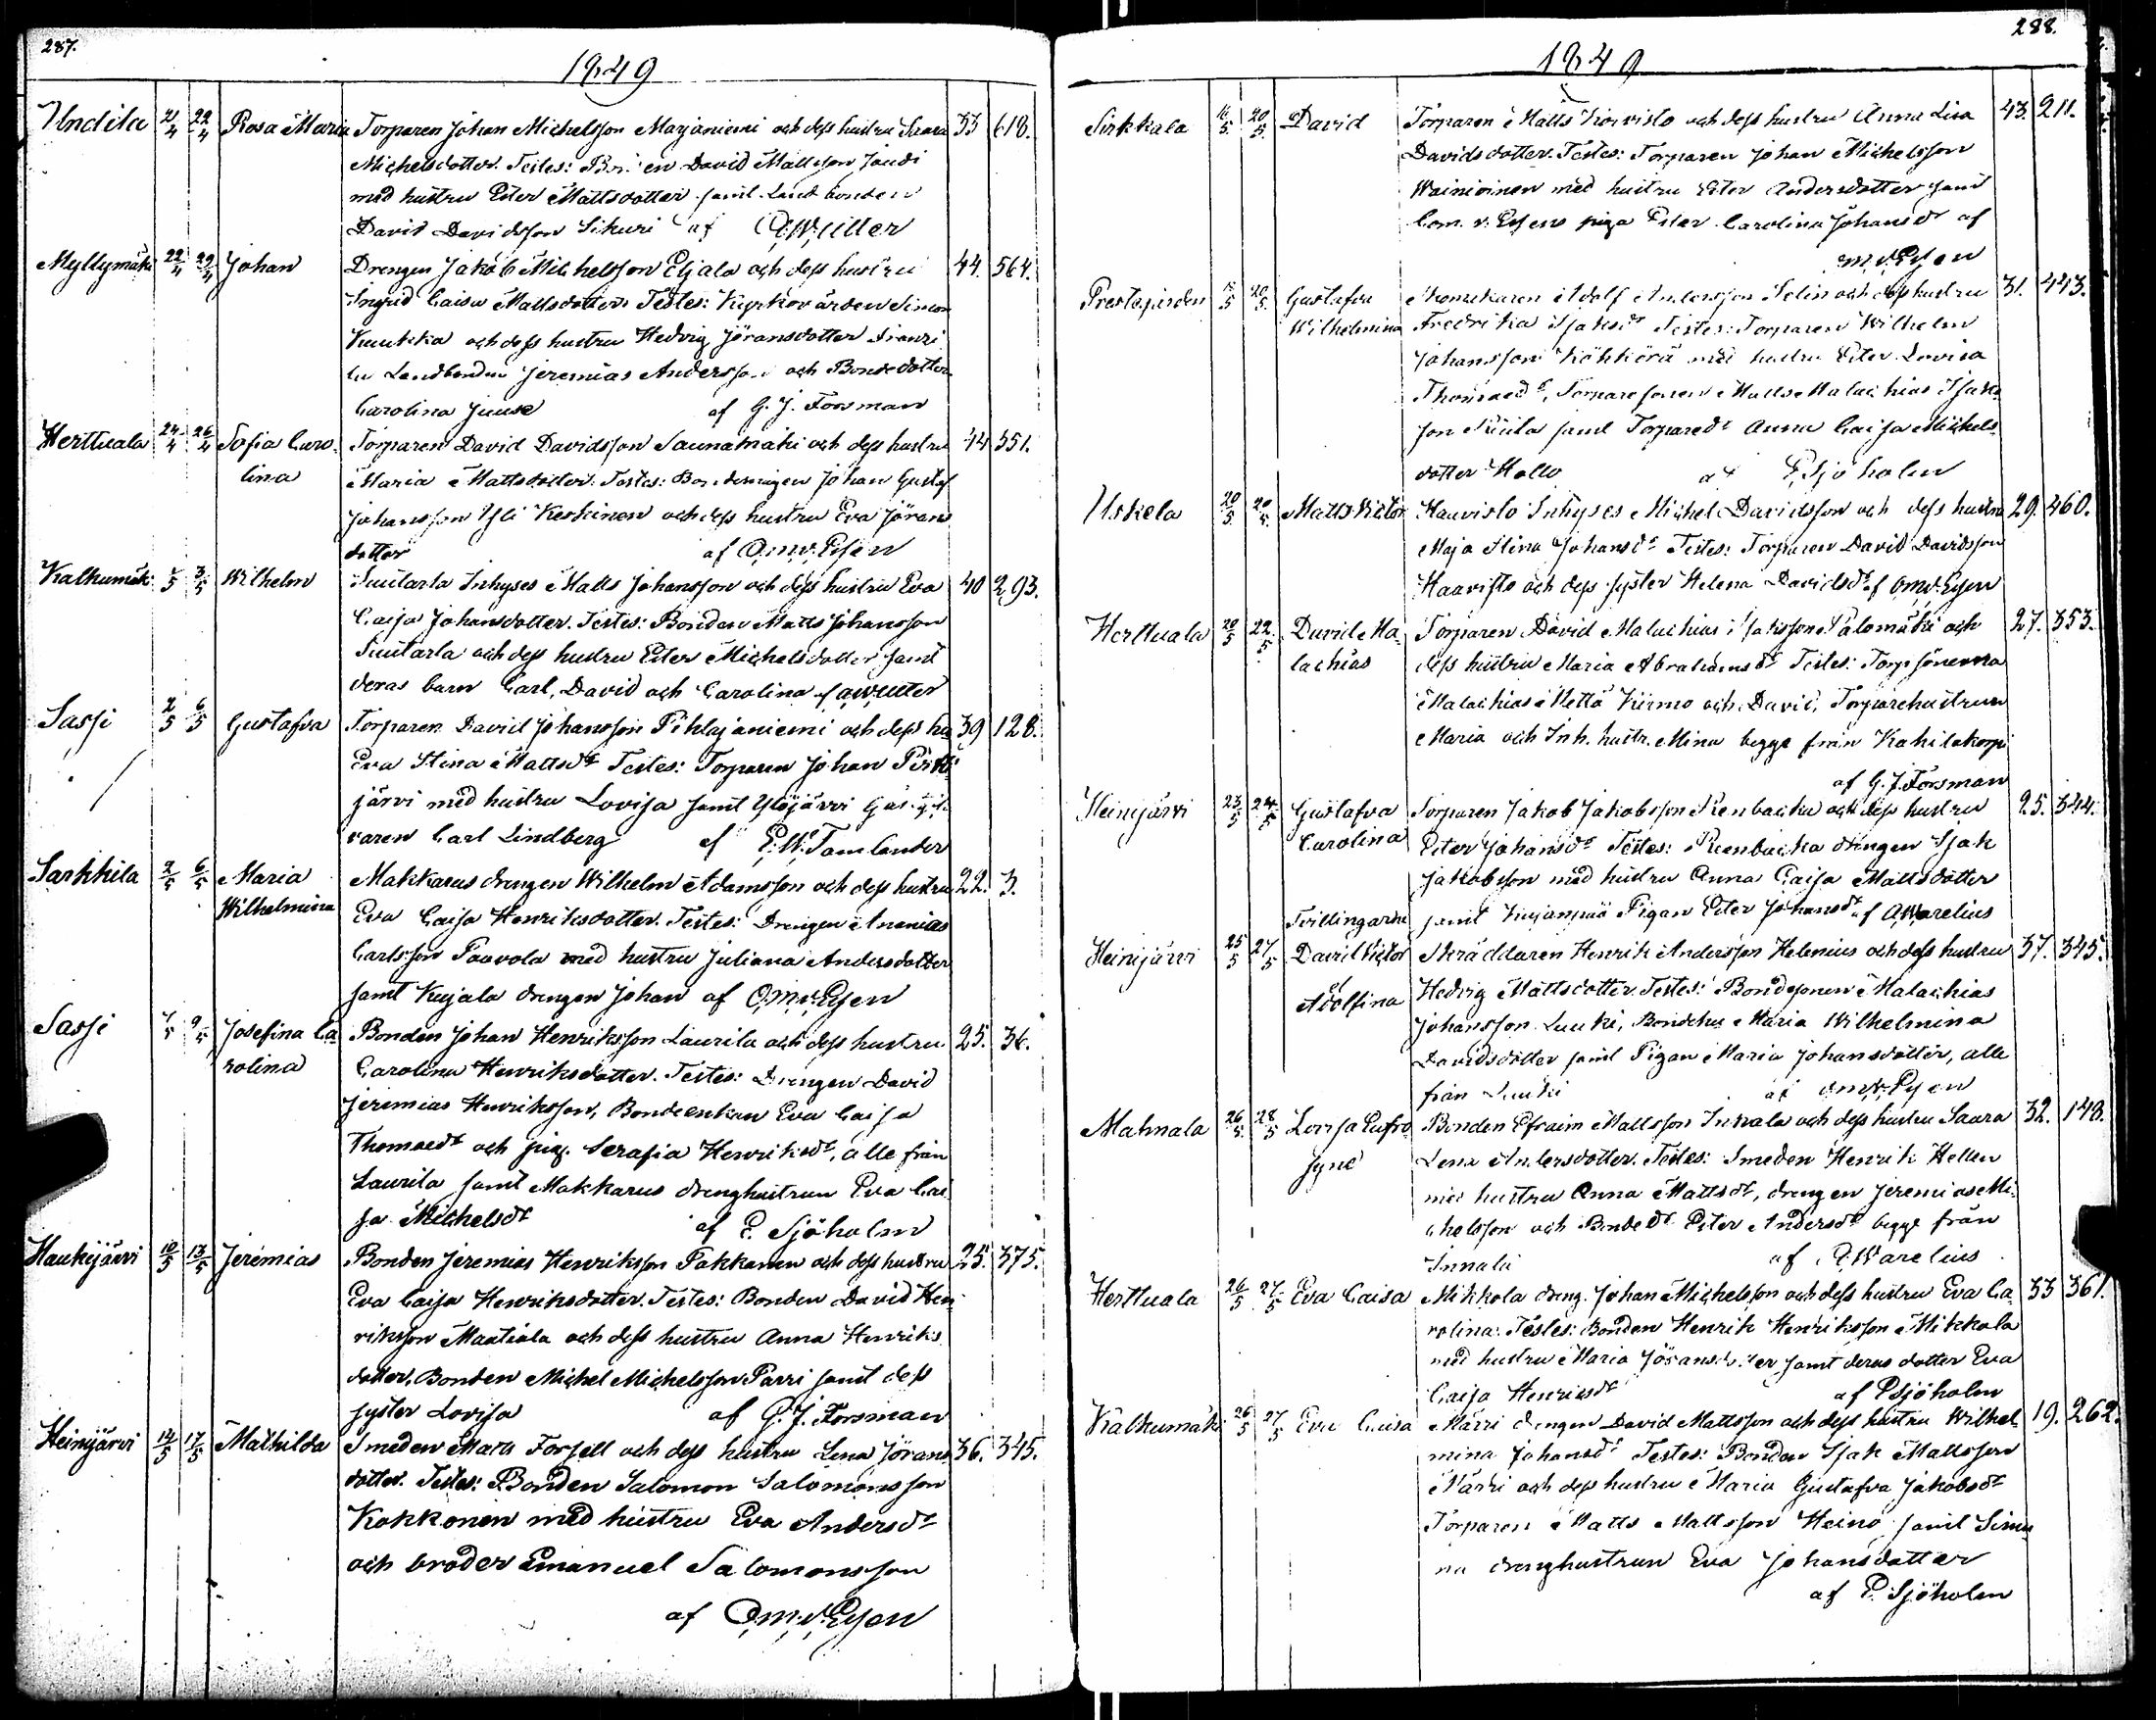 287.
1849
Undila 21/4 22/4 Rosa Maria Torparen Johan Michelsson Marjaniemi och dess hustru Saara 33 618.
Michelsdotter. Testes: David Mattsson Jaudi
med hustru Ester Mattsdotter samt Landbonden
David Davidsson Sikuri af
Myllymäki 22/4 29/4 Johan Drengen Jakob Michelsson Eljala och dess hustru 44. 564.
Ingrid Caisa Mattsdotter. Testes: Kyrkovärden Simon
Kuukka och dess hustru Hedvig Jöransdotter
Landbonden Jeremias Andersson och Bondedotter
Carolina Juuse af G. J. Forsman
Herttuala 24/4 26/4 Sofia Caro- Torparen David Davidsson Saunamäki och dess hustru 44 351.
lina Maria Mattsdotter. Testes: Johan Gustaf
Johansson Yli Keskinen och dess hustru Eva Jörans
dotter af O.M.v.Essen
Kalkumäki 1/5 3/5 Wilhelm Suutarla Inhyses Matts Johansson och dess hustru Eva 40 293.
Caisa Johansdotter. Testes: Bonden Matts Johansson
Suutarla och dess hustru Ester Michelsdotter samt
deras barn Carl, David och Carolina af
Sassi 2/5 6/5 Gustafva Torparen David Johansson Pihlajaniemi och dess hu 39 128.
Eva Stina Mattsdr Testes: Torparen Johan
järvi med hustru Lovisa samt Ylöjärvi
varen Carl Lindberg af E. W. Tamlander
Sarkkila 2/5 6/5 Maria Makkarus drengen Wilhelm Adamsson och dess hustru 22. 3.
Wilhelmina Eva Caisa Henriksdotter. Testes: Drengen Ananias
Carlsson Paavola med hustru Juliana Andersdotter
samt Kujala drengen Johan af O.M.v.Essen
Sassi 7/5 9/5 Josefina Ca Bonden Johan Henriksson Laurila och dess hustru 25. 36.
rolina Carolina Henriksdotter. Testes: Drengen David
Jeremias Henriksson, Bondeenkan Eva Caisa
Thomasdr och pig. Serafia Henriksdr, alla från
Laurila samt Makkarus drenghustrun Eva Cai
sa Michelsdr af E. Sjöholm
Haukijärvi 10/5 13/5 Jeremias Bonden Jeremias Henriksson Pakkanen och dess hustru 25. 375.
Eva Caisa Henriksdotter. Testes: Bonden David Hen
riksson Maatiala och dess hustru Anna Henriks
dotter, Bonden Michel Michelsson Parri samt dess
syster Lovisa af G. J. Forsman
Heinijärvi 14/5 17/5 Mathilda Smeden Matts Forsell och dess hustru Lena Jörans 36. 345.
dotter. Testes: Bonden Salomon Salomonsson
Kokkonen med hustru Eva Andersdr
och broder Emanuel Salomonsson
af O.M.v.Essen
288.
1849
Sirkkala 16/5 20/5 David Torparen Matts Koivisto och dess hustru Anna Lisa 43. 211.
Davidsdotter. Testes: Torparen Johan Michelsson
Wainioinen med hustru Ester Andersdotter samt
Com. v. Essens piga Ester Carolina Johansdr af
M.v.Essen
Prestegården 15/5 20/5 Gustafva Skomakaren Adolf Andersson Selin och dess hustru 31. 443.
Wilhelmina Fredrika Isaksdr Testes: Torparen Wilhelm
Johansson Köhkörä med hustru Ester Lovisa
Thomasdr, Torparesonen Matts Malachias Isaks
son samt Torparedr Anna Caisa Michels
dotter Hollo af E. Sjöholm
Uskela 20/5 20/5 Matts Victor Haavisto Inhyses Michel Davidsson och dess hustru 29. 460.
Maja Stina Johansdr Testes: Torparen David Davidsson
Haavisto och dess syster Helena Davidsdr af OMv.Essen
Herttuala 20/5 22/5 David Ma- Torparen David Malachias Isaksson Palomäki och 27. 353.
lachias dess hustru Maria Abrahamsdr Testes: Torpsönerna
Malachias Mettä Kiirmo och David, Torparehustrun
Maria och Inh. hustr. Mina begge från Kahilakorpi
af G. J. Forsman
Heinijärvi 23/5 24/5 Gustafva Torparen Jakob Jakobsson Rienbacka och dess hustru 25. 344.
Carolina Ester Johansdr Testes: Rienbacka drengen Isak
Jakobsson med hustru Anna Caisa Mattsdotter
Tvillingarne samt Kujanpää Pigan Ester Johansdr af A.Warelius
Heinijärvi 25/5 27/5 David Victor Skräddaren Henrik Andersson Helenius och dess hustru 37. 345.
et Adolfina Hedvig Mattsdotter. Testes: Bondesonen Malachias
Johansson Luuki, Bondehu Maria Wilhelmina
Davidsdotter samt Pigan Maria Johansdotter, alla
från Luuki af OMv.Essen
Mahnala 26/5 28/5 Lovisa Eufro Bonden Efraim Mattsson Innala och dess hustru Saara 32. 148.
syne Lena Andersdotter. Testes: Smeden Henrik Hellen
med hustru Anna Mattsdr, drengen Jeremias Mi
chelsson och Bondedr Ester Andersdr begge från
Innala af A.Warelius
Herttuala 26/5 27/5 Eva Caisa Mikkola dreng. Johan Michelsson och dess hustru Eva Ca 33 361.
rolina. Testes: Bonden Henrik Henriksson Mikkola
med hustru Maria Jöransdotter samt deras dotter Eva
Caisa Henriksdr af E Sjöholm
Kalkumäki 26/5 27/5 Eva Caisa Märri drengen David Mattsson och dess hustru Wilhel- 19. 262.
mina Johansdr Testes: Bonden Isak Mattsson
Märri och dess hustru Maria Gustafva Jakobsdr
Torparen Matts Mattsson Heino samt Simu
na drenghustrun Eva Johansdotter
af E. Sjöholm